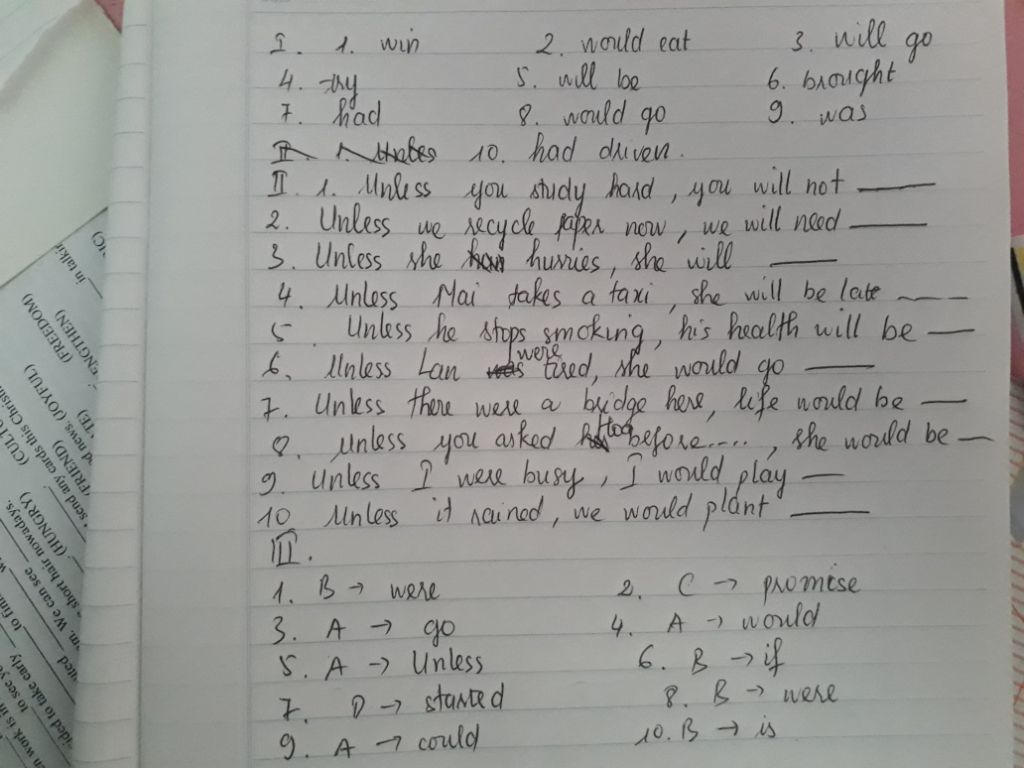 I. 1. win 2. would eat 3. will go
4. try 5. will be 6. brought
7. had 8. would go 9. was
II 1. 10. had driven.
II. 1. Unless you study hard, you will not ——
2. Unless we recycle paper now, we will need ——
3. Unless she hurries, she will ——
4. Unless Mai takes a taxi, she will be late ——
5. Unless he stops smoking, his health will be —
6. Unless Lan were tired, she would go ——
7. Unless there were a bridge here, life would be —
8. Unless you asked before...., she would be —
9. Unless I were busy, I would play —
10 Unless it rained, we would plant ——
III.
1. B → were 2. C → promise
3. A → go 4. A → would
5. A → Unless 6. B → if
7. D → started 8. B → were
9. A → could 10. B → is
in talk
(FREEDOM)
(JOYFUL)
cards this Christ
(FRIEND)
send any
(HUNGRY)
short hair nowadays.
m. We can see
to take early